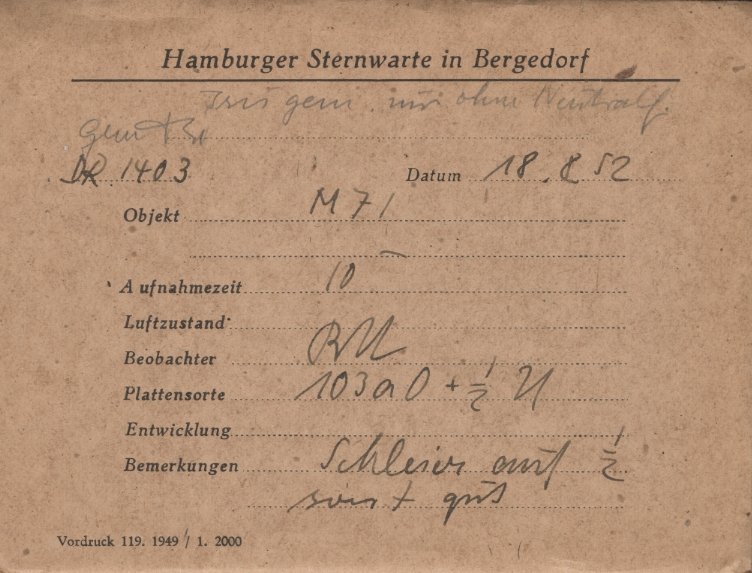 Hamburger Sternwarte in Bergedorf
Iris gem. nur ohne Neutralf.
Gem
DR 1403 Datum 18.8.52
Objekt M 71
Aufnahmezeit 10
Luftzustand
Beobachter
Plattensorte 103a0 + ½
Entwicklung
Bemerkungen Schleier auf ½
sonst gut
Vordruck 119. 1949 / 1. 2000